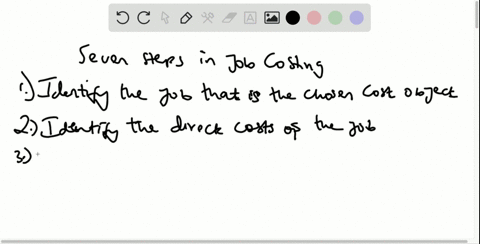 Seven steps in Job Costing
1.) Identify the job that is the chosen cost object
2.) Identify the direct costs of the job
3.)